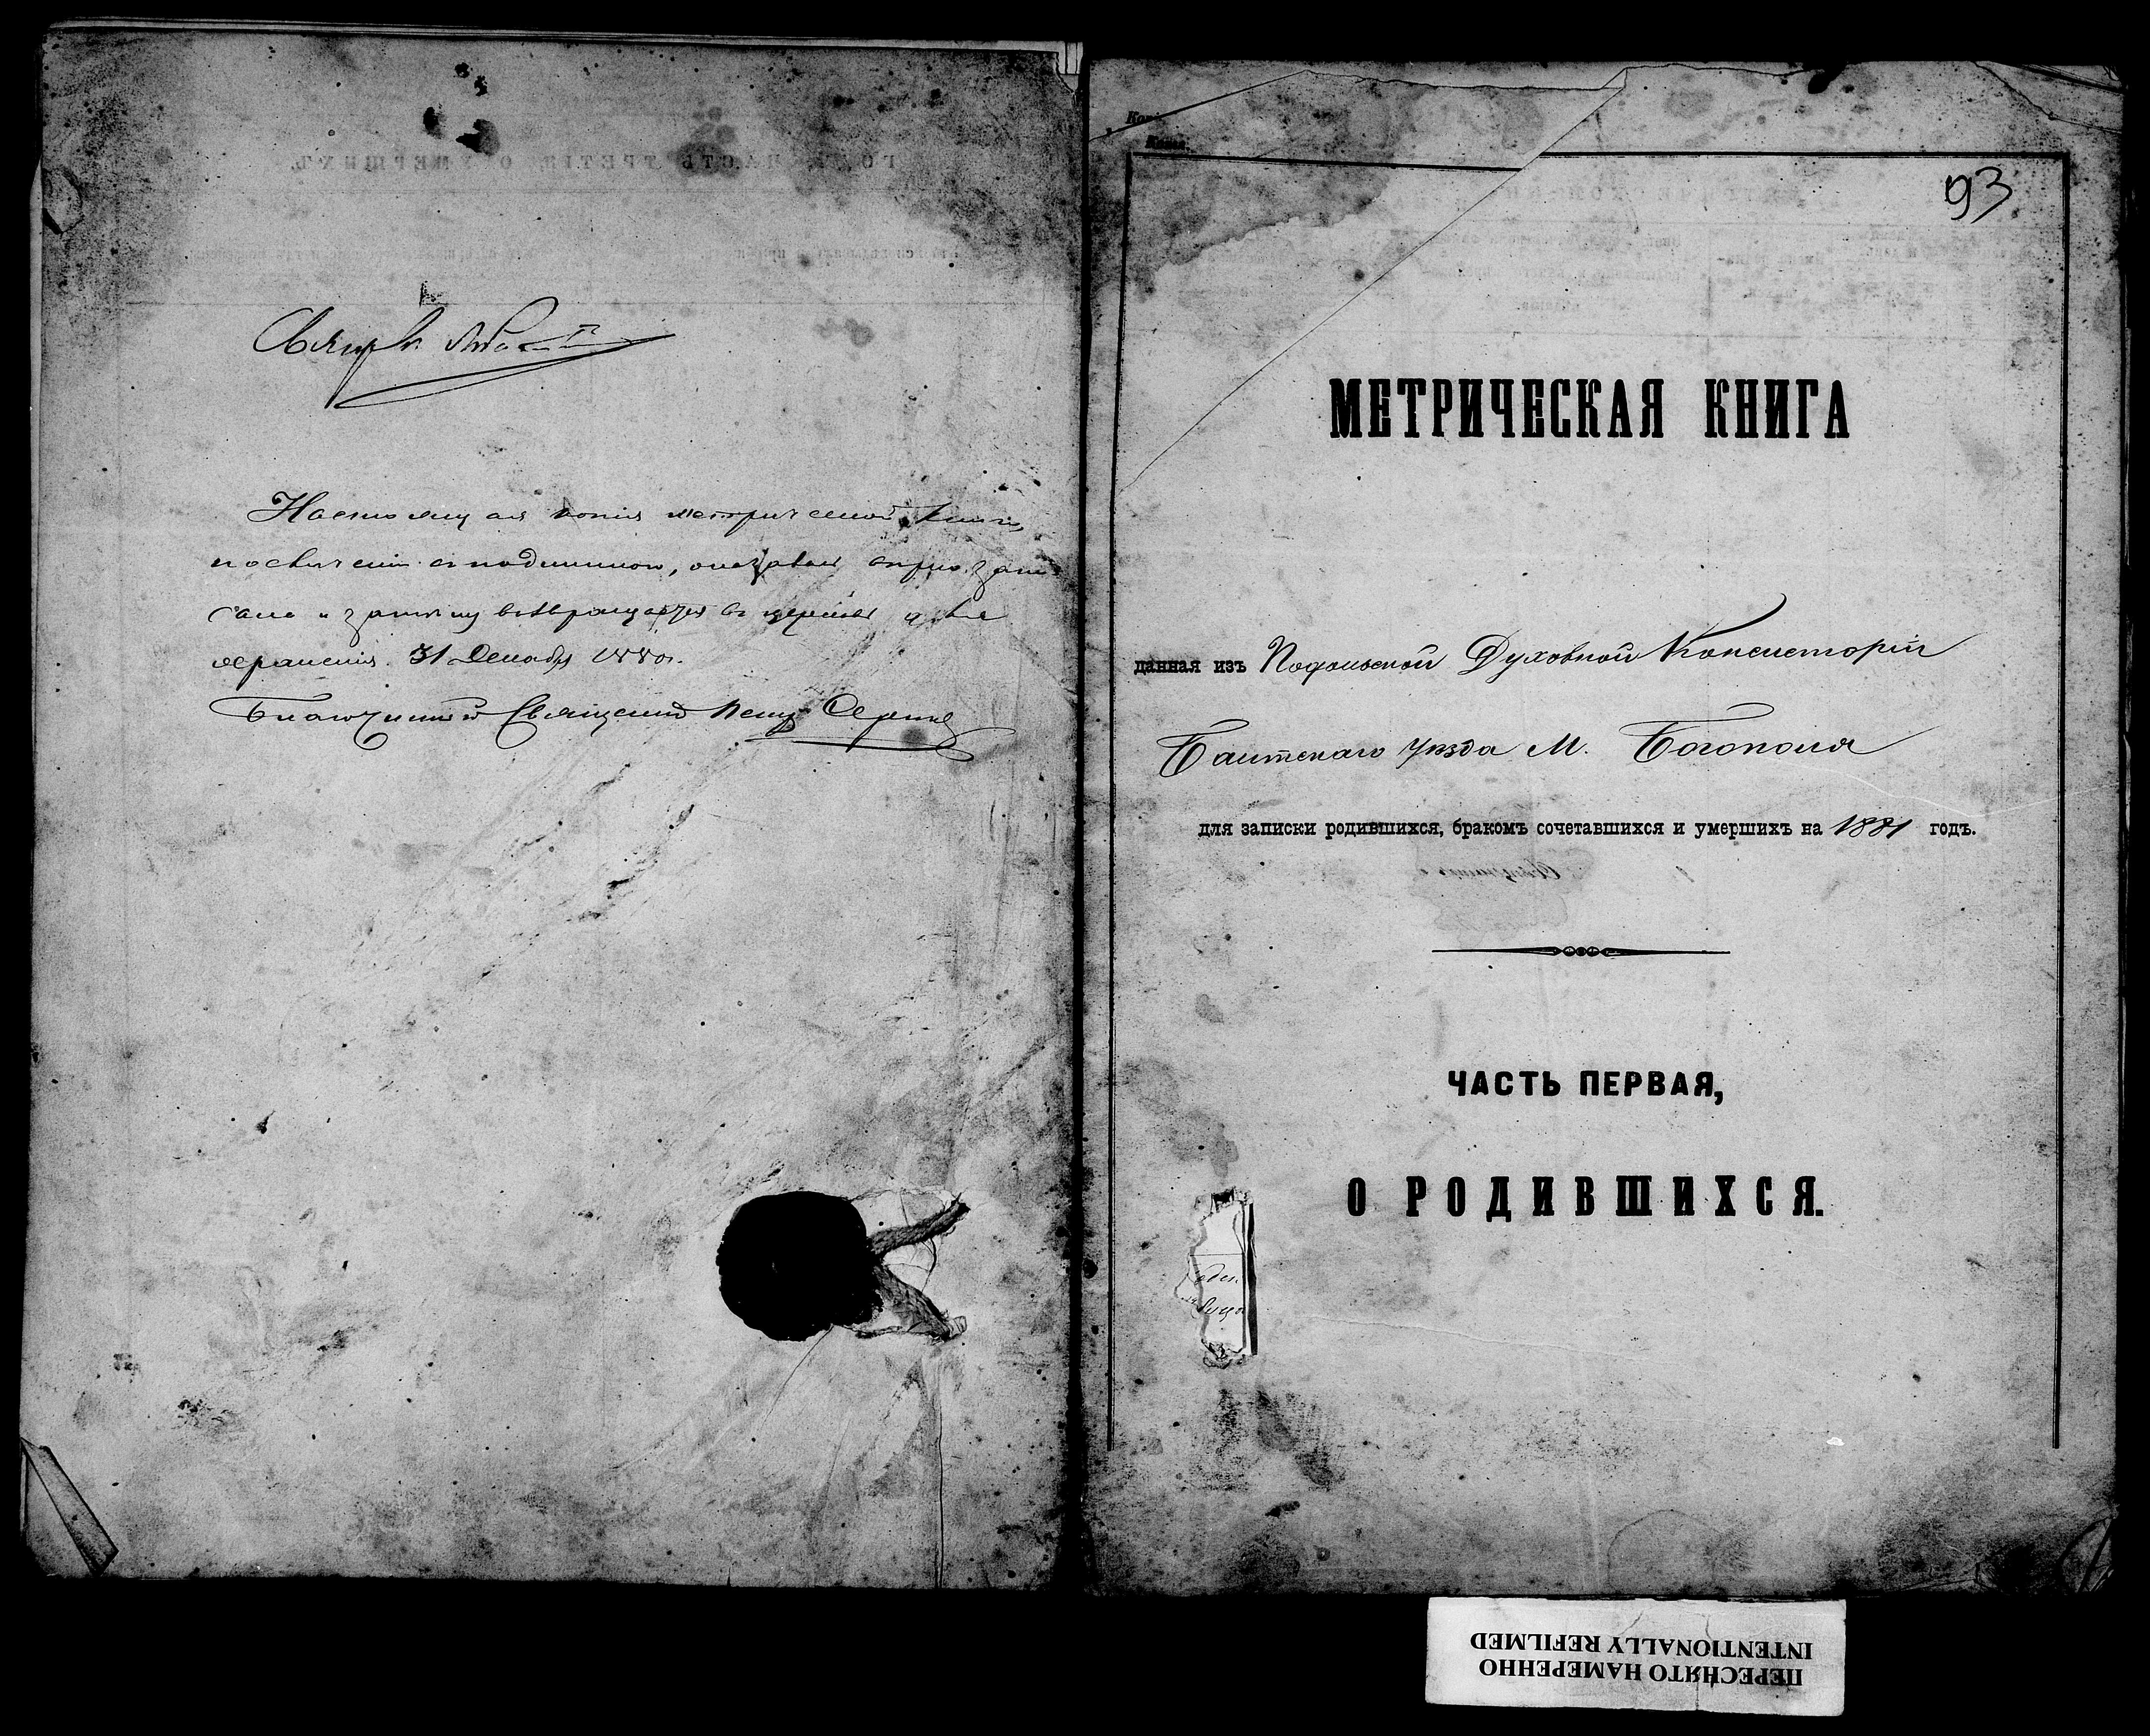 Настоящая копія метрической книги
по свѣреніи съ подлинною, оказалась
и затѣмъ возвращается въ церковь для
храненія. 31 Декабря 1880 г.
Благочинный Священникъ
93
МЕТРИЧЕСКАЯ КНИГА
данная изъ Подольской Духовной Консисторіи
Балтскаго уѣзда М. Богополя
для записки родившихся, бракомъ сочетавшихся и умершихъ на 1881 годъ.
ЧАСТЬ ПЕРВАЯ,
О РОДИВШИХСЯ.
ПЕРЕСНЯТО НАМЕРЕННО
INTENTIONALLY REFILMED